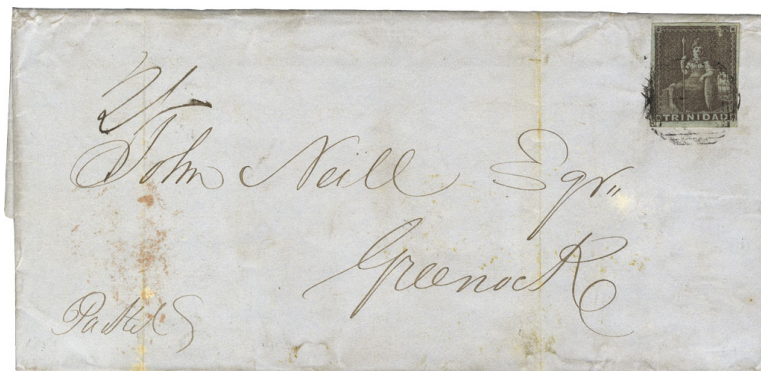 TRINIDAD
2/
John Neill Esqr"
Greenock
Packet